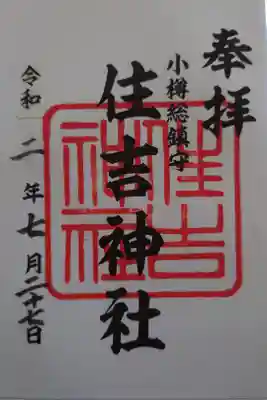 奉拝
小樽総鎮守
住吉神社
令和二年七月二十七日
住吉神社